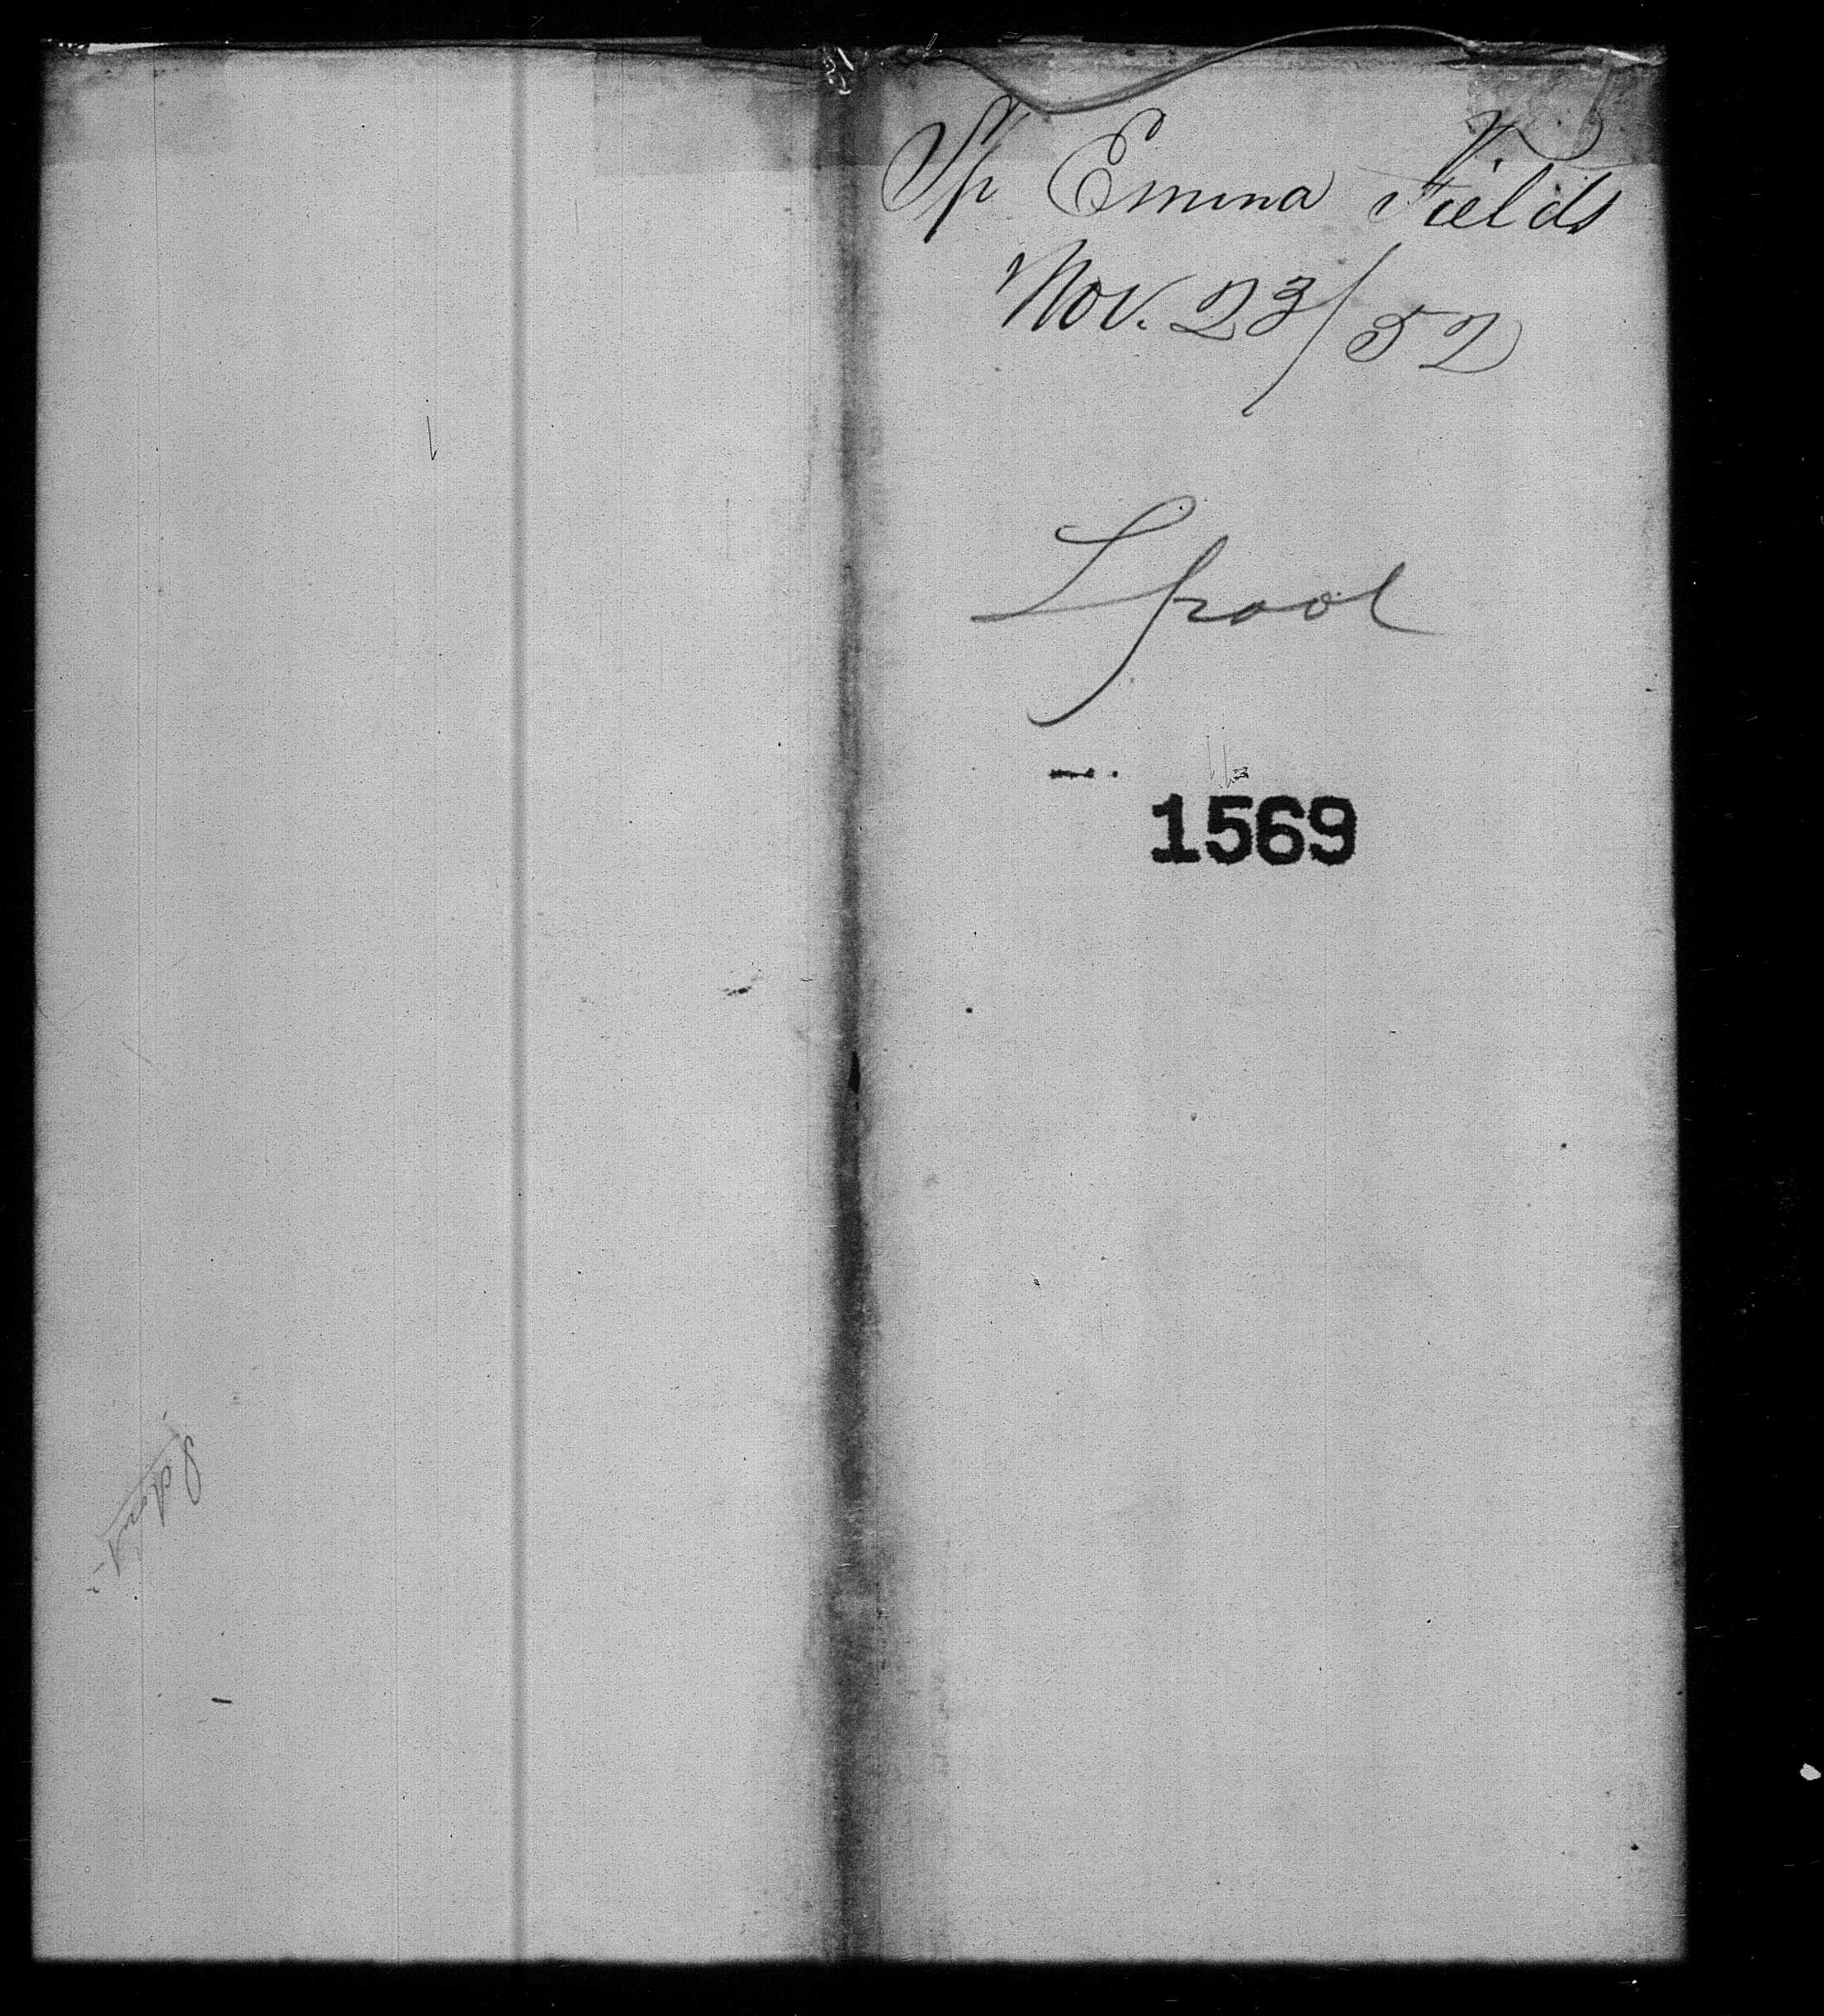 Sp Emma Fields
Nov. 23/52
Lpool
1569